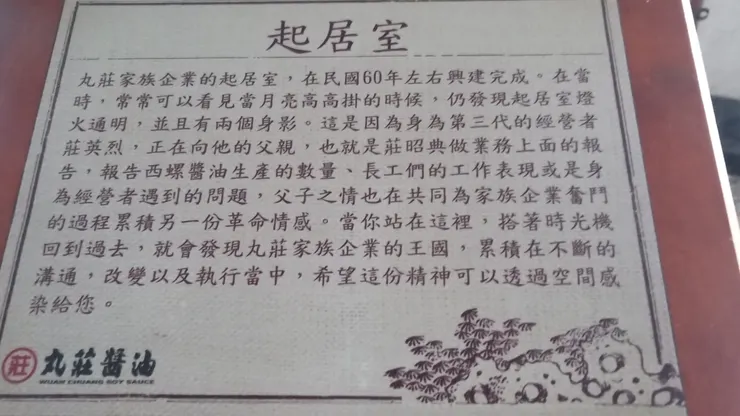 起居室
丸莊家族企業的起居室，在民國60年左右興建完成。在當
時，常常可以看見當月亮高高掛的時候，仍發現起居室燈
火通明，並且有兩個身影。這是因為身為第三代的經營者
莊英烈，正在向他的父親，也就是莊昭典做業務上面的報
告，報告西螺醬油生產的數量、長工們的工作表現或是身
為經營者遇到的問題，父子之情也在共同為家族企業奮鬥
的過程累積另一份革命情感。當你站在這裡，搭著時光機
回到過去，就會發現丸莊家族企業的王國，累積在不斷的
溝通，改變以及執行當中，希望這份精神可以透過空間感
染給您。
莊 丸莊醬油
WUAN CHUANG SOY SAUCE